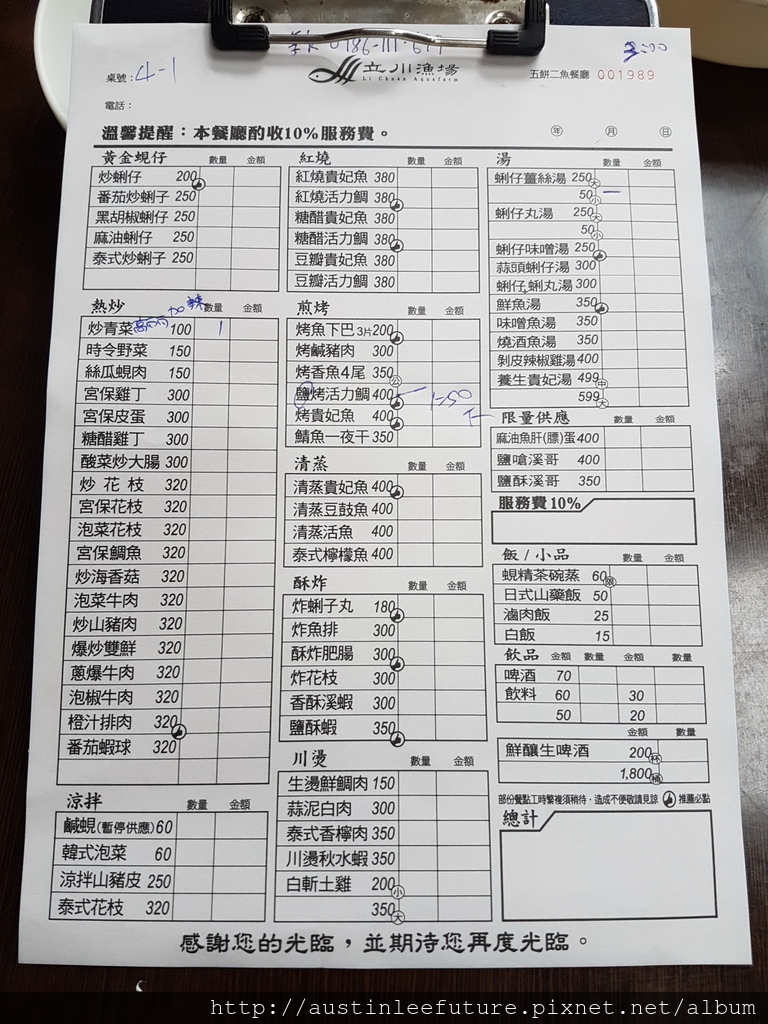 0186-111-677
立川漁場
Li Chuan Aquafarm
五餅二魚餐廳 001989
桌號：4-1
電話：
溫馨提醒：本餐廳酌收10%服務費。
年 月 日
黃金蜆仔 數量 金額
炒蜊仔 200
番茄炒蜊子 250
黑胡椒蜊仔 250
麻油蜊仔 250
泰式炒蜊子 250
熱炒 加辣 數量 金額
炒青菜 100 1
時令野菜 150
絲瓜蜆肉 150
宮保雞丁 300
宮保皮蛋 300
糖醋雞丁 300
酸菜炒大腸 300
炒花枝 320
宮保花枝 320
泡菜花枝 320
宮保鯛魚 320
炒海香菇 320
泡菜牛肉 320
炒山豬肉 320
爆炒雙鮮 320
蔥爆牛肉 320
泡椒牛肉 320
橙汁排肉 320
番茄蝦球 320
涼拌 數量 金額
鹹蜆(暫停供應) 60
韓式泡菜 60
涼拌山豬皮 250
泰式花枝 320
紅燒 數量 金額
紅燒貴妃魚 380
紅燒活力鯛 380
糖醋貴妃魚 380
糖醋活力鯛 380
豆瓣貴妃魚 380
豆瓣活力鯛 380
煎烤 數量 金額
烤魚下巴3片 200
烤鹹豬肉 300
烤香魚4尾 350 公
鹽烤活力鯛 400
烤貴妃魚 400
鯖魚一夜干 350
清蒸 數量 金額
清蒸貴妃魚 400
清蒸豆鼓魚 400
清蒸活魚 400
泰式檸檬魚 400
酥炸 數量 金額
炸蜊子丸 180
炸魚排 300
酥炸肥腸 300
炸花枝 300
香酥溪蝦 300
鹽酥蝦 350
川燙 數量 金額
生燙鮮鯛肉 150
蒜泥白肉 300
泰式香檸肉 350
川燙秋水蝦 350
白斬土雞 200 小
350 大
湯 數量 金額
蜊仔薑絲湯 250 大
50 小 一
蜊仔丸湯 250 大
50 小
蜊仔味噌湯 250
蒜頭蜊仔湯 300
蜊仔蜊丸湯 300
鮮魚湯 350
味噌魚湯 350
燒酒魚湯 350
剝皮辣椒雞湯 400
養生貴妃湯 499 中
599 大
限量供應 數量 金額
麻油魚肝(膘)蛋 400
鹽嗆溪哥 400
鹽酥溪哥 350
服務費10%
飯/小品 數量 金額
蜆精茶碗蒸 60 限
日式山藥飯 50
滷肉飯 25
白飯 15
飲品 金額 數量 金額 數量
啤酒 70
飲料 60 30
50 20
金額 數量
鮮釀生啤酒 200 杯
1,800 桶
部份餐點工時繁複須稍待，造成不便敬請見諒 推薦必點
總計
感謝您的光臨，並期待您再度光臨。
http://austinleefuture.pixnet.net/album